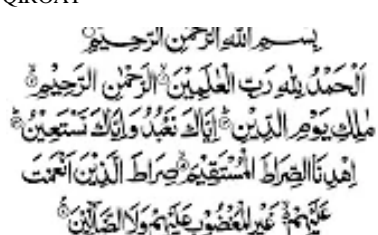 بِسْمِ اللهِ الرَّحْمٰنِ الرَّحِيْمِ
اَلْحَمْدُ لِلّٰهِ رَبِّ الْعٰلَمِيْنَ الرَّحْمٰنِ الرَّحِيْمِ
مٰلِكِ يَوْمِ الدِّيْنِ اِيَّاكَ نَعْبُدُ وَاِيَّاكَ نَسْتَعِيْنُ
اِهْدِنَا الصِّرَاطَ الْمُسْتَقِيْمَ صِرَاطَ الَّذِيْنَ اَنْعَمْتَ
عَلَيْهِمْ غَيْرِ الْمَغْضُوْبِ عَلَيْهِمْ وَلَا الضَّآلِّيْنَ